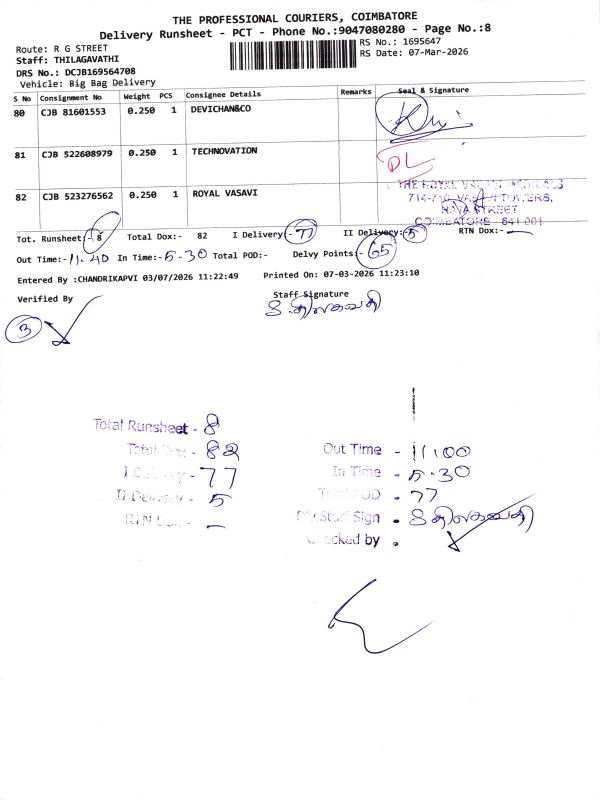 THE PROFESSIONAL COURIERS, COIMBATORE
Delivery Runsheet - PCT - Phone No.:9047080280 - Page No.:8
Route: R G STREET
RS No.: 1695647
Staff: THILAGAVATHI
RS Date: 07-Mar-2026
DRS No.: DCJB169564708
Vehicle: Big Bag Delivery
S No Consignment No Weight PCS Consignee Details Remarks Seal & Signature
80 CJB 81601553 0.250 1 DEVICHAN&CO
81 CJB 522608979 0.250 1 TECHNOVATION DL
82 CJB 523276562 0.250 1 ROYAL VASAVI
THE ROYAL
TOWERS,
STREET
COIMBATORE - 641 001
Tot. Runsheet:- 8 Total Dox:- 82 I Delivery:- 77 II Delivery:- 5 RTN Dox:- —
Out Time:- 11.40 In Time:- 5-30 Total POD:- Delvy Points:- 65
Entered By :CHANDRIKAPVI 03/07/2026 11:22:49 Printed On: 07-03-2026 11:23:10
Verified By
Staff Signature
3
S.திலகவதி
Total Runsheet - 8
Total Dox - 82
I Delivery - 77
II Delivery - 5
RTN Dox - —
Out Time - 11.00
In Time - 5-30
Total POD - 77
Dly Staff Sign - S திலகவதி
Checked by -